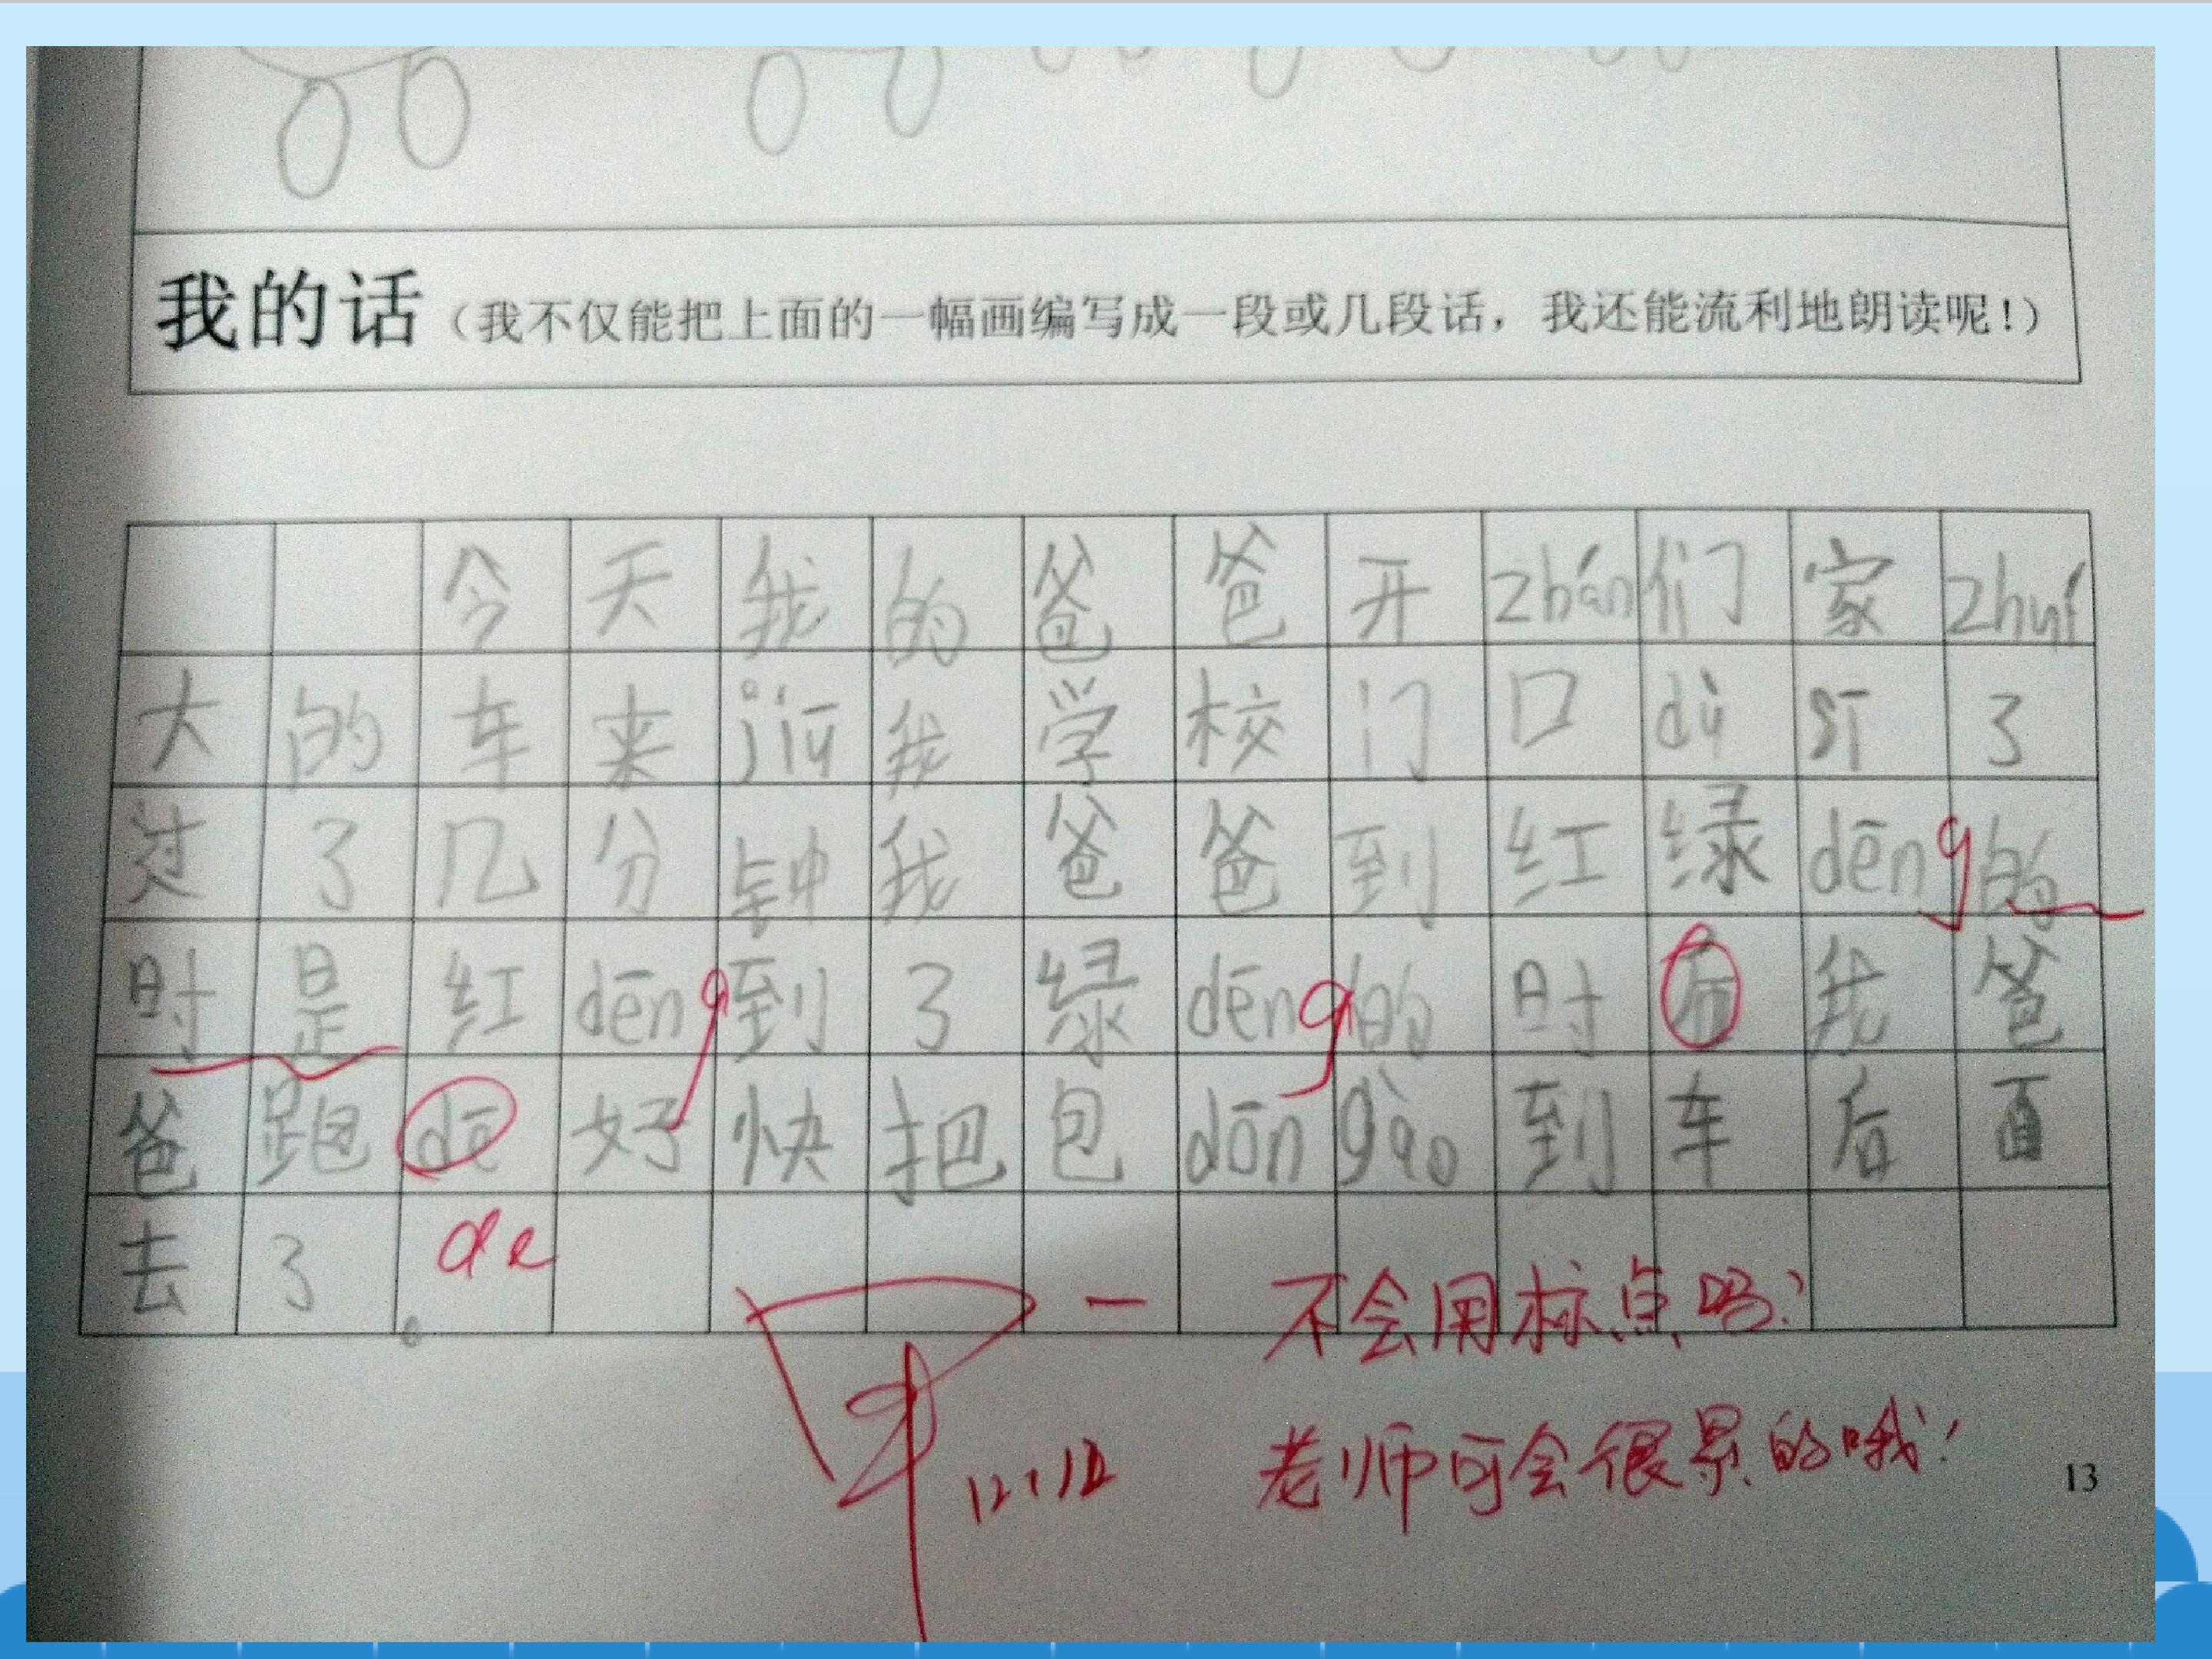 我的话（我不仅能把上面的一幅画编写成一段或几段话，我还能流利地朗读呢！）
今天我的爸爸开zhán们家zhuí
大的车来jiū我学校门口dǔ sī了
过了几分钟我爸爸到红绿dēng的
时是红dēng到了绿dēng的时 我爸
爸跑dē好快把包dōn gào到车后面
去了。
de
不会用标点吗？
12.12
老师可会很累的哦！
13